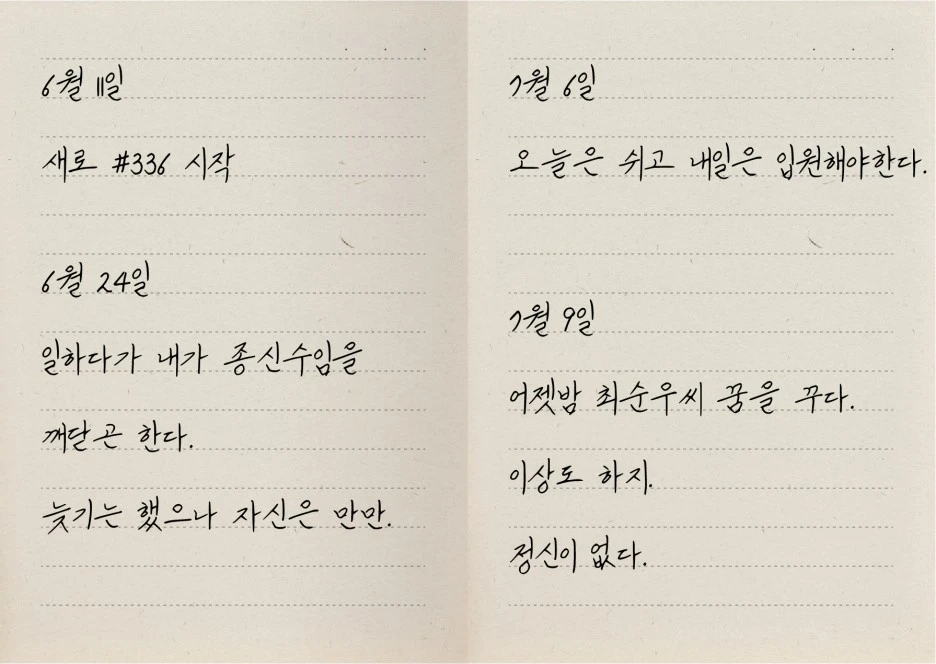 6월 11일
새로 #336 시작
6월 24일
일하다가 내가 종신수임을
깨닫곤 한다.
늦기는 했으나 자신은 만만.
7월 6일
오늘은 쉬고 내일은 입원해야한다.
7월 9일
어젯밤 최순우씨 꿈을 꾸다.
이상도 하지.
정신이 없다.